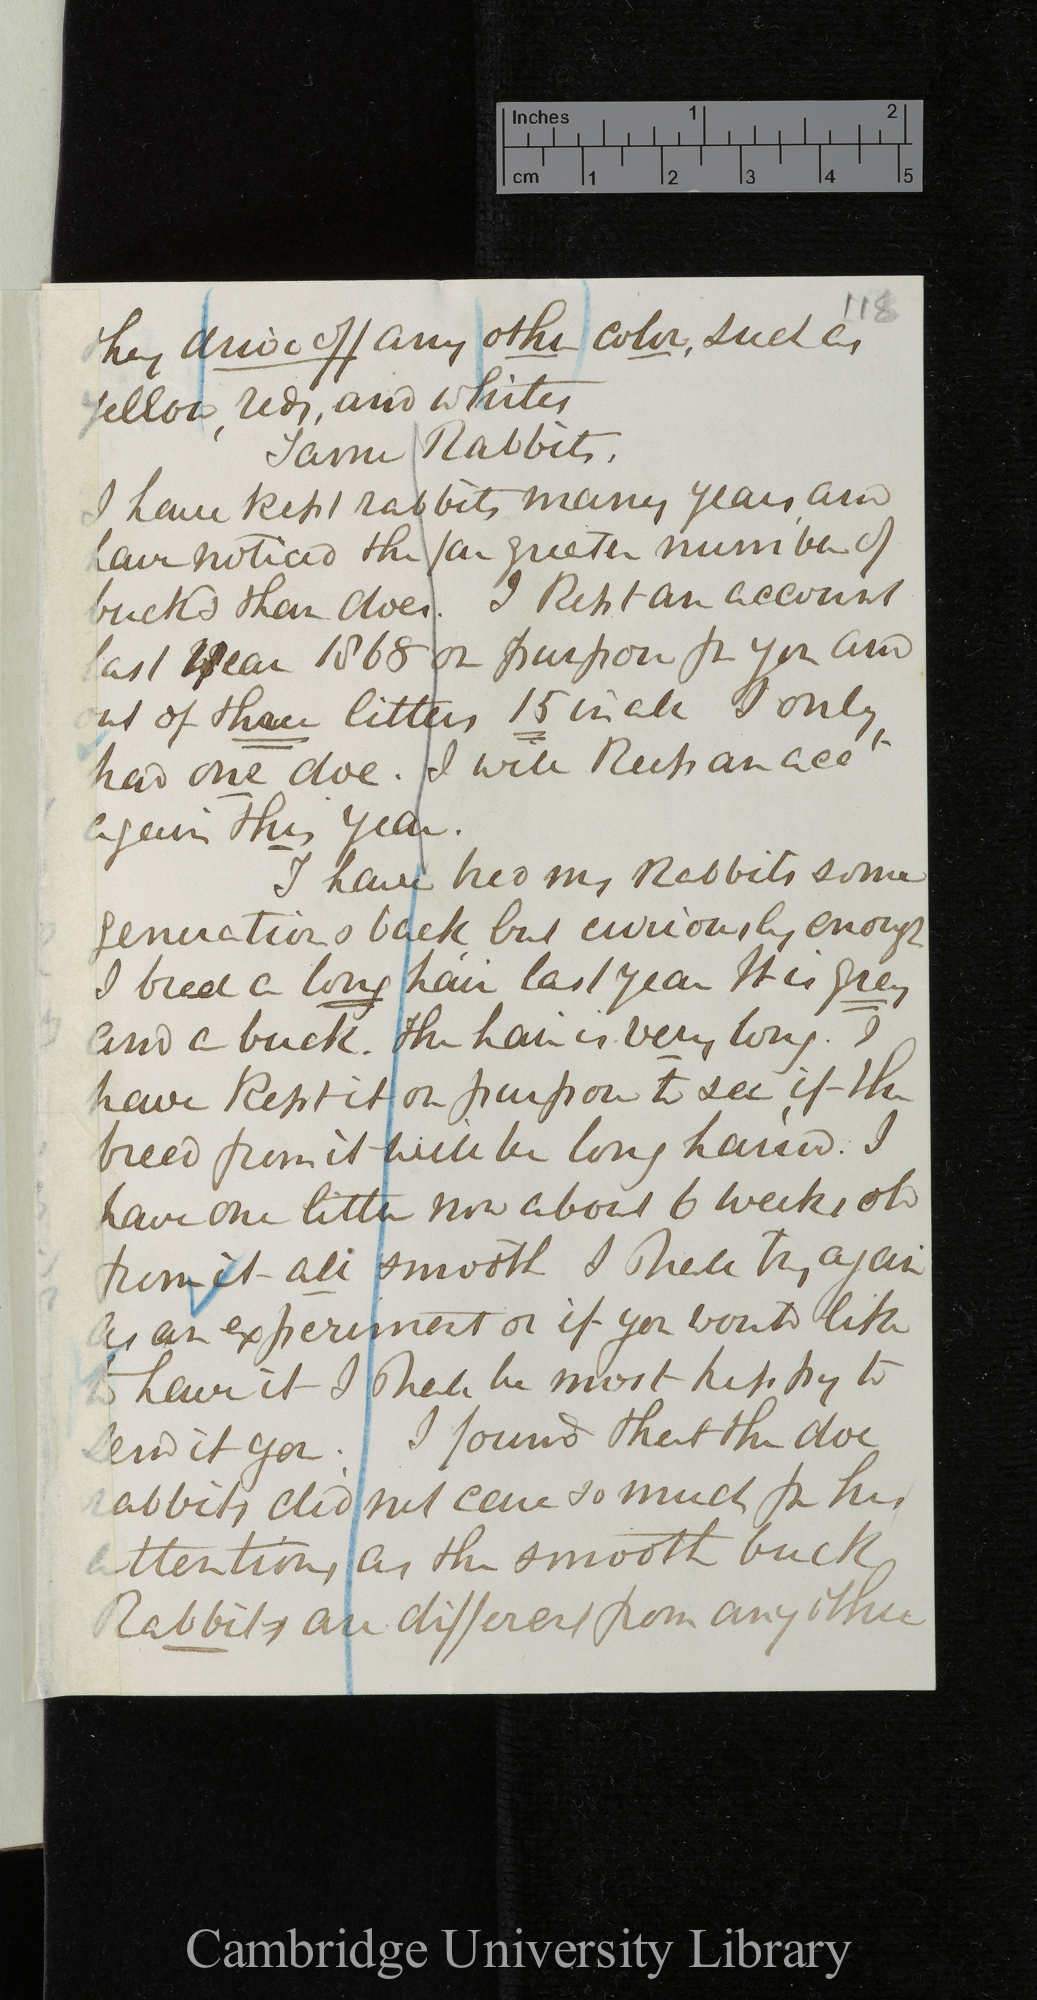 Inches 1 2
cm 1 2 3 4 5
118
they drive off any other color, such as
yellow, reds, and whites
Tame Rabbits.
I have kept rabbits many years, and
have noticed the far greater number of
bucks than does. I kept an account
last year 1868 on purpose for you and
out of three litters 15 in all I only
had one doe. I will keep an acct
again this year.
I have bred my Rabbits some
generations back but curiously enough
I bred a long hair last year It is grey
and a buck. the hair is very long. I
have kept it on purpose to see if the
breed from it will be long haired. I
have one litter now about 6 weeks old
from it all smooth I shall try again
as an experiment or if you would like
to have it I shall be most happy to
send it you. I found that the doe
rabbits did not care so much for his
attentions as the smooth buck
Rabbits are different from any other
Cambridge University Library